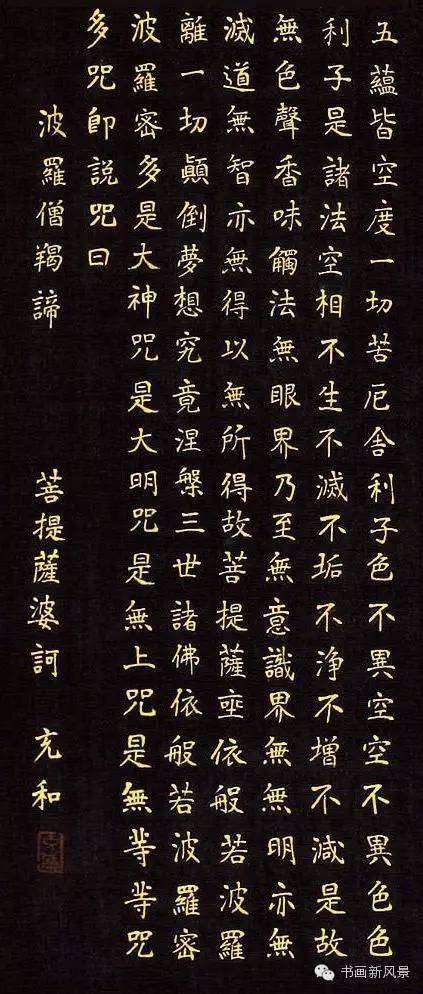 五蘊皆空度一切苦厄舍利子色不異空空不異色色
利子是諸法空相不生不滅不垢不淨不增不減是故
無色聲香味觸法無眼界乃至無意識界無無明亦無
滅道無智亦無得以無所得故菩提薩埵依般若波羅
離一切顛倒夢想究竟涅槃三世諸佛依般若波羅密
波羅密多是大神咒是大明咒是無上咒是無等等咒
多咒即說咒曰
波羅僧羯諦 菩提薩婆訶 充和
书画新风景